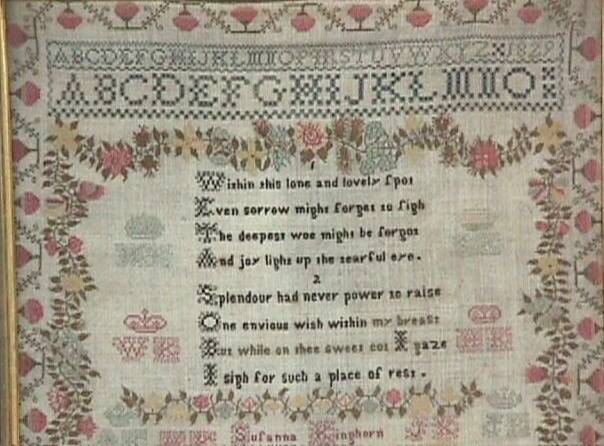 ABCDEFGHIJKLMNOPQRSTUVWXYZ 1829
ABCDEFGHIJKLMNO
1
Within this lone and lovely spot
Even sorrow might forget to sigh
The deepest woe might be forgot
And joy light up the tearful eye.
2
Splendour had never power to raise
One envious wish within my breast
But while on thee sweet cot I gaze
I sigh for such a place of rest.
Susanna Binghorn